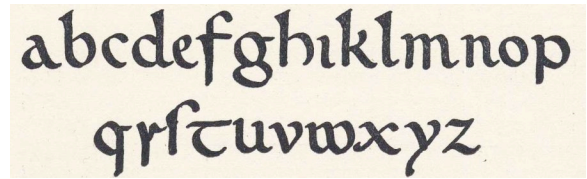 abcdefghıklmnop
qrſtuvwxyz